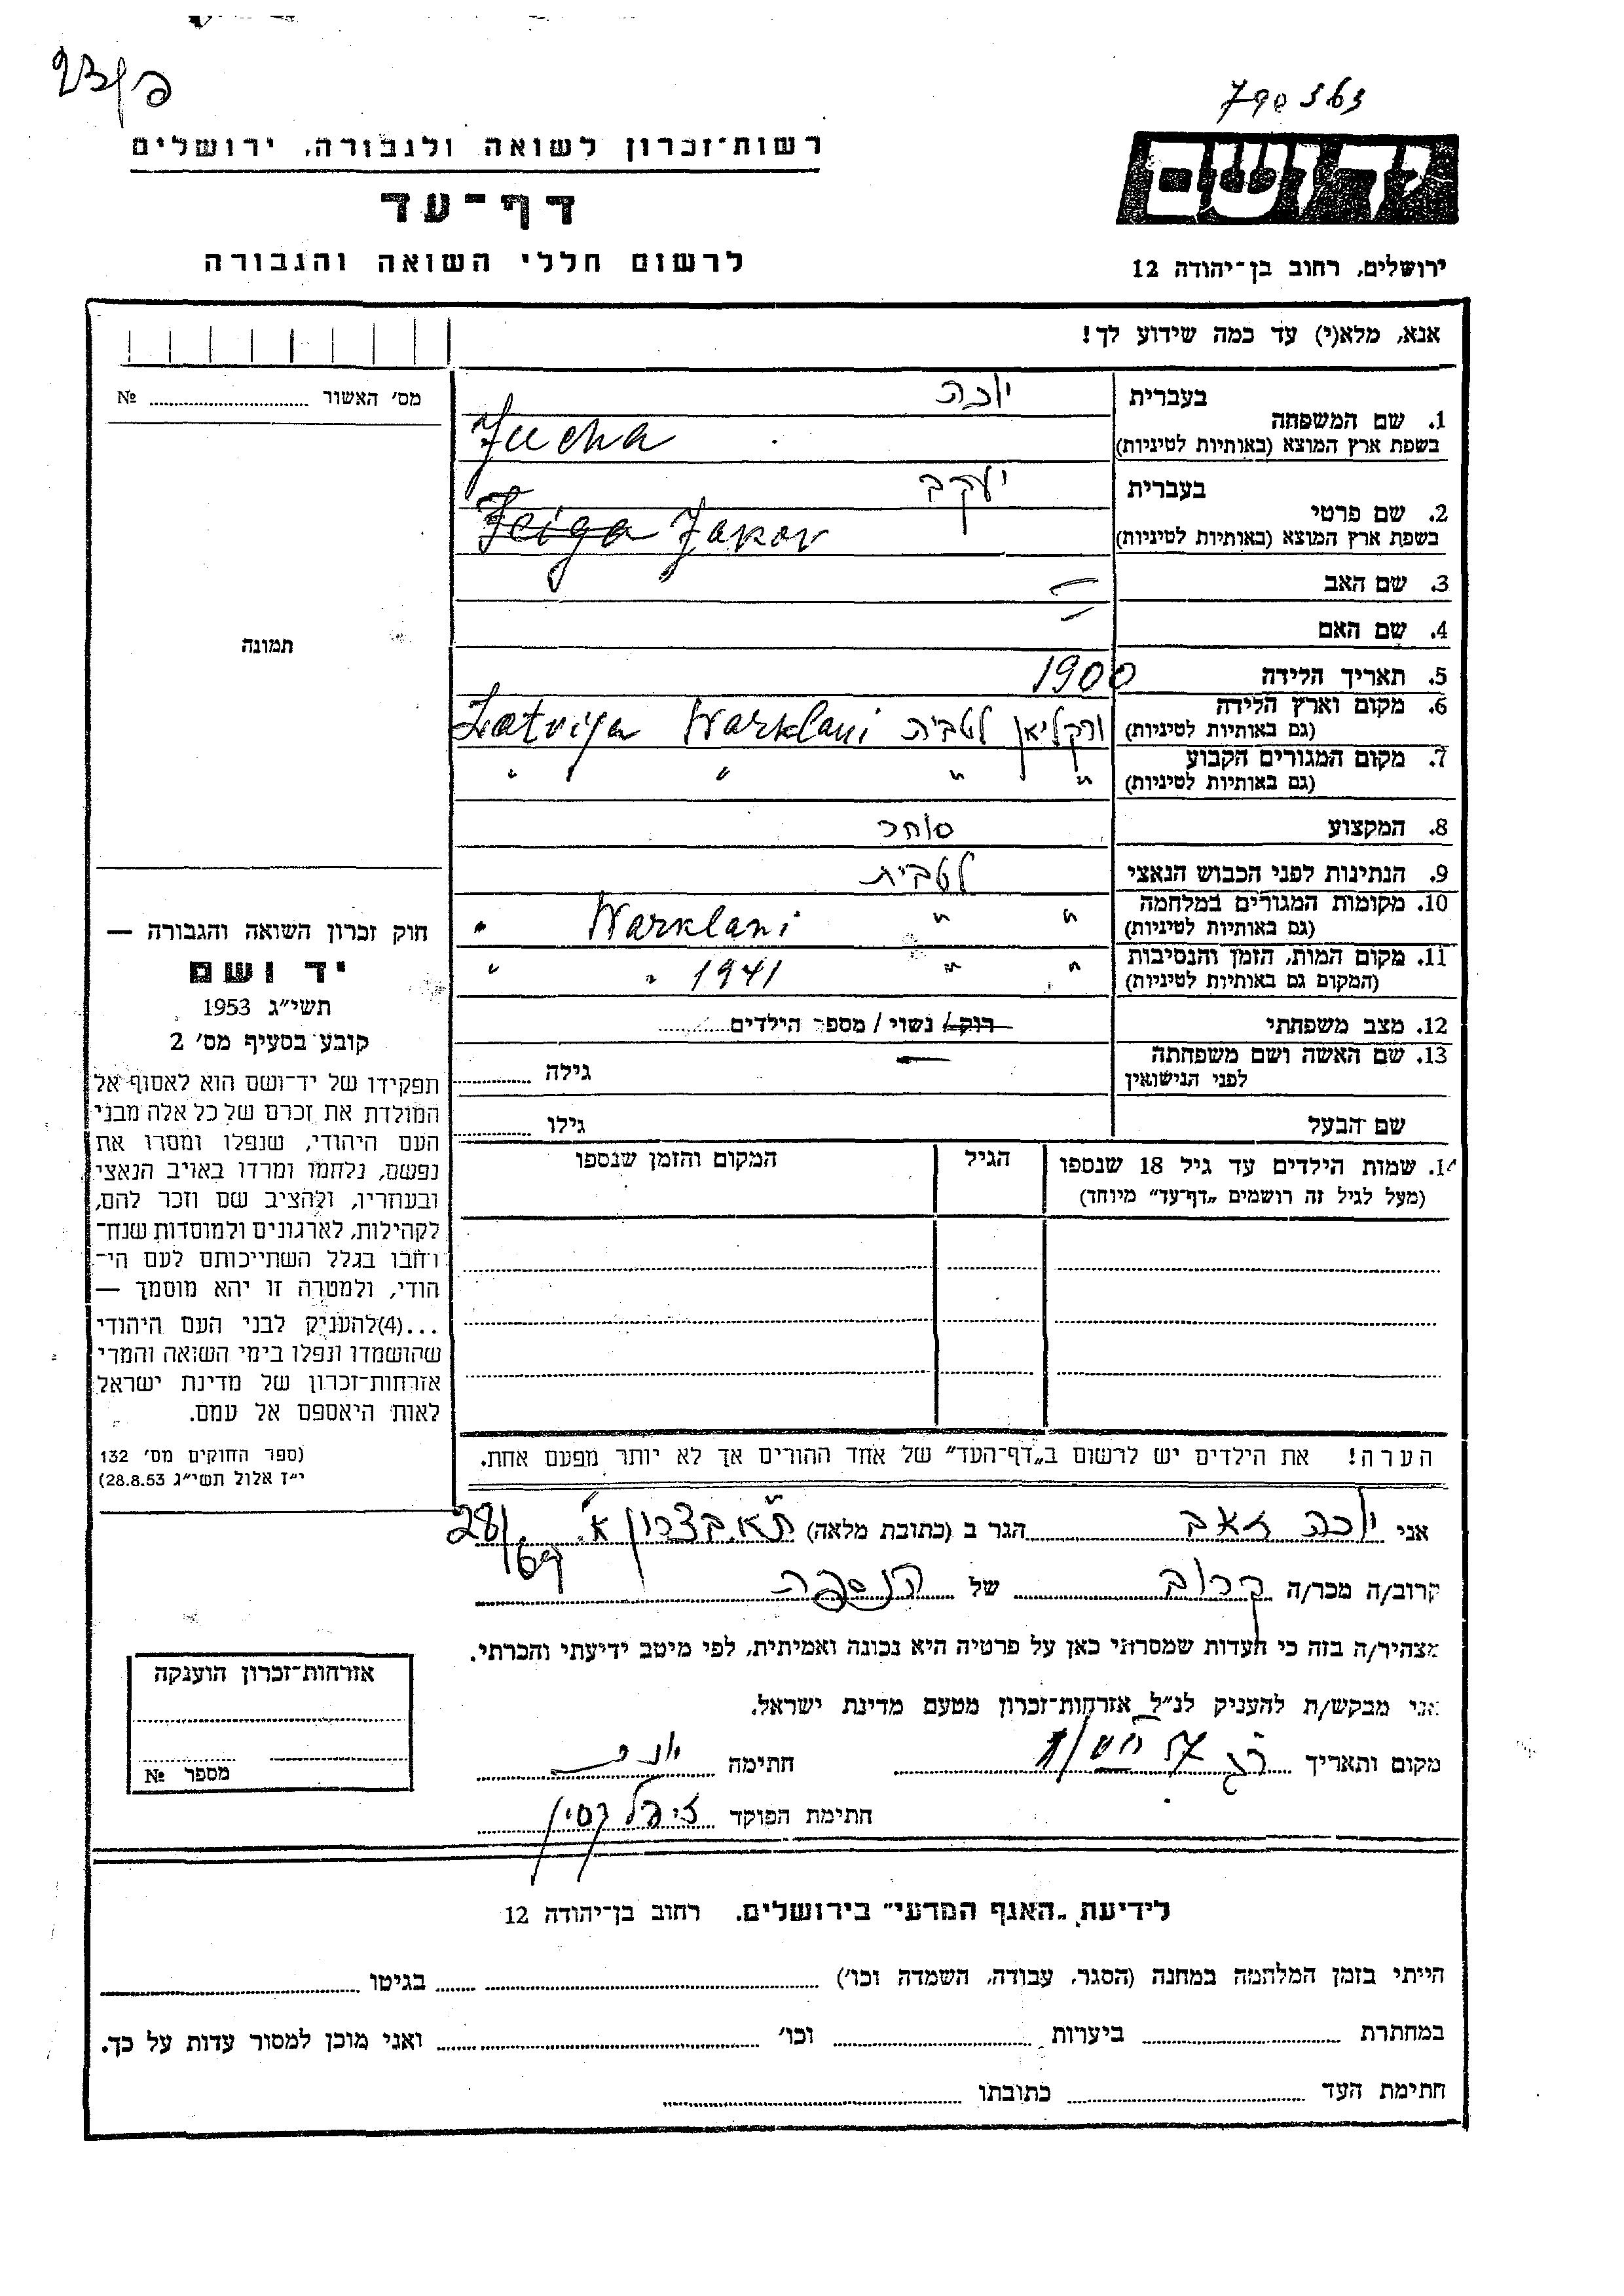 790363
רשות־זכרון לשואה ולגבורה, ירושלים
דף־עד
לרשום חללי השואה והגבורה
ידושם
ירושלים, רחוב בן־יהודה 12
אנא, מלא(י) עד כמה שידוע לך!
מס׳ האשור № 
תמונה
1. שם המשפחה
בעברית יוכה
בשפת ארץ המוצא (באותיות לטיניות) Jucha
2. שם פרטי
בעברית יעקב
בשפת ארץ המוצא (באותיות לטיניות) Feiga Jakov
3. שם האב —
4. שם האם —
5. תאריך הלידה 1900
6. מקום וארץ הלידה
(גם באותיות לטיניות) ורקליאן לטביה Warklani Latviya
7. מקום המגורים הקבוע
(גם באותיות לטיניות) " " " "
8. המקצוע סוחר
9. הנתינות לפני הכבוש הנאצי לטבית
10. מקומות המגורים במלחמה
(גם באותיות לטיניות) " " Warklani "
11. מקום המות, הזמן והנסיבות
(המקום גם באותיות לטיניות) " " 1941 " "
12. מצב משפחתי רוק/ נשוי / מספר הילדים
13. שם האשה ושם משפחתה
לפני הנישואין — גילה
שם הבעל גילו
14. שמות הילדים עד גיל 18 שנספו הגיל המקום והזמן שנספו
(מעל לגיל זה רושמים „דף־עד״ מיוחד)
הערה! את הילדים יש לרשום ב„דף־העד״ של אחד ההורים אך לא יותר מפעם אחת.
חוק זכרון השואה והגבורה —
יד ושם
תשי״ג 1953
קובע בסעיף מס׳ 2
תפקידו של יד־ושם הוא לאסוף אל
המולדת את זכרם של כל אלה מבני
העם היהודי, שנפלו ומסרו את
נפשם, נלחמו ומרדו באויב הנאצי
ובעוזריו, ולהציב שם וזכר להם,
לקהילות, לארגונים ולמוסדות שנח־
רבו בגלל השתייכותם לעם הי־
הודי, ולמטרה זו יהא מוסמך —
...(4)להעניק לבני העם היהודי
שהושמדו ונפלו בימי השואה והמרי
אזרחות־זכרון של מדינת ישראל
לאות היאספם אל עמם.
(ספר החוקים מס׳ 132
י״ז אלול תשי״ג 28.8.53)
אני יוכה זאב הגר ב (כתובת מלאה) ת״א בצרון א׳ 28/69
קרוב/ה מכר/ה קרוב של הנספה
מצהיר/ה בזה כי העדות שמסרתי כאן על פרטיה היא נכונה ואמיתית, לפי מיטב ידיעתי והכרתי.
אני מבקש/ת להעניק לנ״ל אזרחות־זכרון מטעם מדינת ישראל.
מקום ותאריך חתימה
חתימת הפוקד
אזרחות־זכרון הוענקה
מספר №
לידיעת „האגף המדעי״ בירושלים. רחוב בן־יהודה 12
הייתי בזמן המלחמה במחנה (הסגר, עבודה, השמדה וכו׳) בגיטו
במחתרת ביערות וכו׳ ואני מוכן למסור עדות על כך.
חתימת העד כתובתו